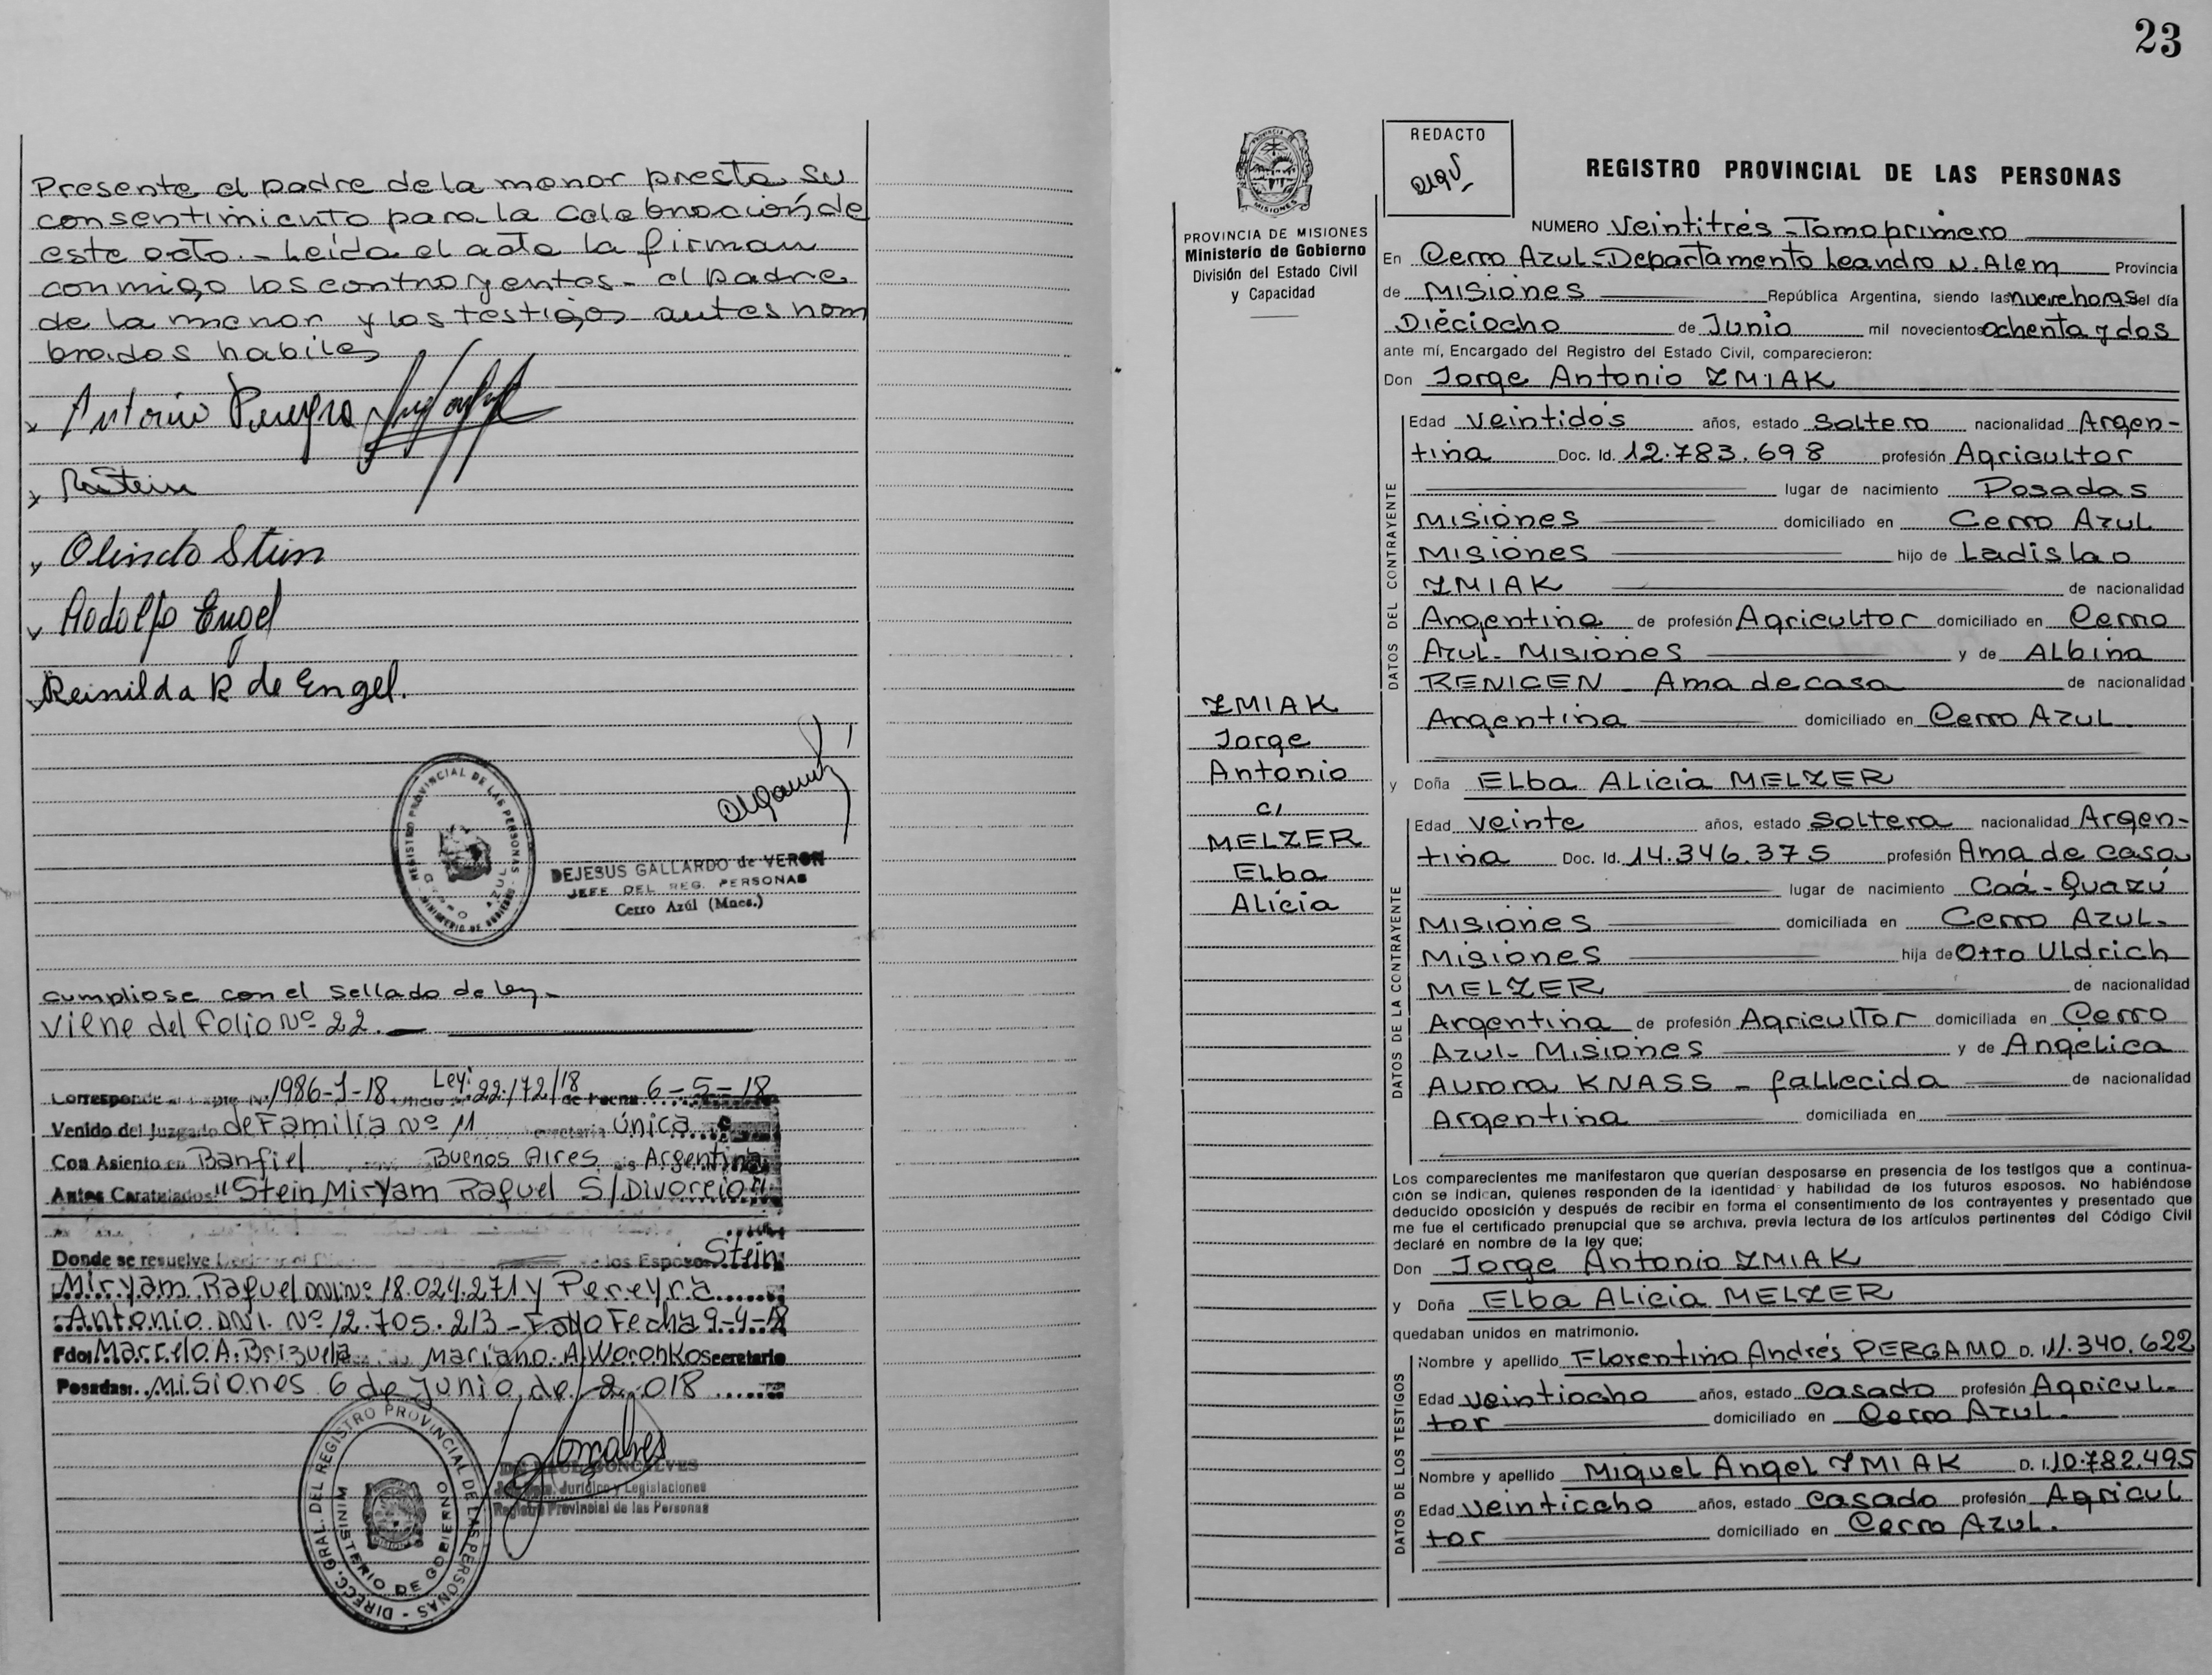 Presente el padre de la menor presta su
consentimiento para la celebración de
este acto.- Leída el acta la firman
conmigo los contrayentes - el padre
de la menor y los testigos antes nom
brados habiles
x Antonio Pereyra
x RStein
x Olindo Stein
x Rodolfo Engel
x Reinilda R de Engel.
REGISTRO PROVINCIAL DE LAS PERSONAS
MINISTERIO DE GOBIERNO
CERRO AZUL
DEJESUS GALLARDO de VERON
JEFE DEL REG. PERSONAS
Cerro Azúl (Mnes.)
cumpliose con el sellado de ley.-
Viene del Folio Nº 22.
Corresponde al Expte Nº 1986-J-18 Oficio Ley: 22.172/18 de Fecha 6-5-18
Venido del Juzgado de Familia Nº 11 Secretaria única
Con Asiento en Banfiel Buenos Aires País Argentina
Autos Caratulados "Stein Miryam Raquel S/Divorcio"
Donde se resuelve los Esposos Stein
Miryam Raquel DNI Nº 18.024.271 y Pereyra
Antonio DNI. Nº 12.705.213 - Fallo Fecha 9-4-18
Fdo: Marcelo A. Brizuela Mariano A. Woronko Secretario
Posadas: Misiones 6 de Junio de 2.018
DIRECC. GRAL. DEL REGISTRO PROVINCIAL DE LAS PERSONAS
MINISTERIO DE GOBIERNO
GONCALVES
Jurídico y Legislaciones
Registro Provincial de las Personas
23
PROVINCIA DE MISIONES
PROVINCIA DE MISIONES
Ministerio de Gobierno
División del Estado Civil
y Capacidad
ZMIAK
Jorge
Antonio
c/
MELZER
Elba
Alicia
REDACTO
REGISTRO PROVINCIAL DE LAS PERSONAS
NUMERO Veintitrés - Tomo primero
En Cerro Azul - Departamento Leandro N. Alem Provincia
de Misiones República Argentina, siendo las nueve horas del día
Dieciocho de Junio mil novecientos ochenta y dos
ante mí, Encargado del Registro del Estado Civil, comparecieron:
Don Jorge Antonio ZMIAK
DATOS DEL CONTRAYENTE
Edad veintidos años, estado Soltero nacionalidad Argen-
tina Doc. Id. 12.783.698 profesión Agricultor
lugar de nacimiento Posadas
Misiones domiciliado en Cerro Azul
Misiones hijo de Ladislao
ZMIAK de nacionalidad
Argentina de profesión Agricultor domiciliado en Cerro
Azul- Misiones y de Albina
RENICEN - Ama de casa de nacionalidad
Argentina domiciliado en Cerro Azul.
y Doña Elba Alicia MELZER
DATOS DE LA CONTRAYENTE
Edad veinte años, estado Soltera nacionalidad Argen-
tina Doc. Id. 14.346.375 profesión Ama de casa
lugar de nacimiento Caá-Guazú
Misiones domiciliada en Cerro Azul.
Misiones hija de Otto Uldrich
MELZER de nacionalidad
Argentina de profesión Agricultor domiciliada en Cerro
Azul- Misiones y de Angélica
Aurora KNASS - fallecida de nacionalidad
Argentina domiciliada en
Los comparecientes me manifestaron que querían desposarse en presencia de los testigos que a continua-
ción se indican, quienes responden de la identidad y habilidad de los futuros esposos. No habiéndose
deducido oposición y después de recibir en forma el consentimiento de los contrayentes y presentado que
me fue el certificado prenupcial que se archiva, previa lectura de los artículos pertinentes del Código Civil
declaré en nombre de la ley que;
Don Jorge Antonio ZMIAK
y Doña Elba Alicia MELZER
quedaban unidos en matrimonio.
DATOS DE LOS TESTIGOS
Nombre y apellido Florentino Andrés PERGAMO D. 11.340.622
Edad veintiocho años, estado Casado profesión Agricul-
tor domiciliado en Cerro Azul.
Nombre y apellido Miguel Angel ZMIAK D. I. 10.782.495
Edad veintiocho años, estado Casado profesión Agricul
tor domiciliado en Cerro Azul.